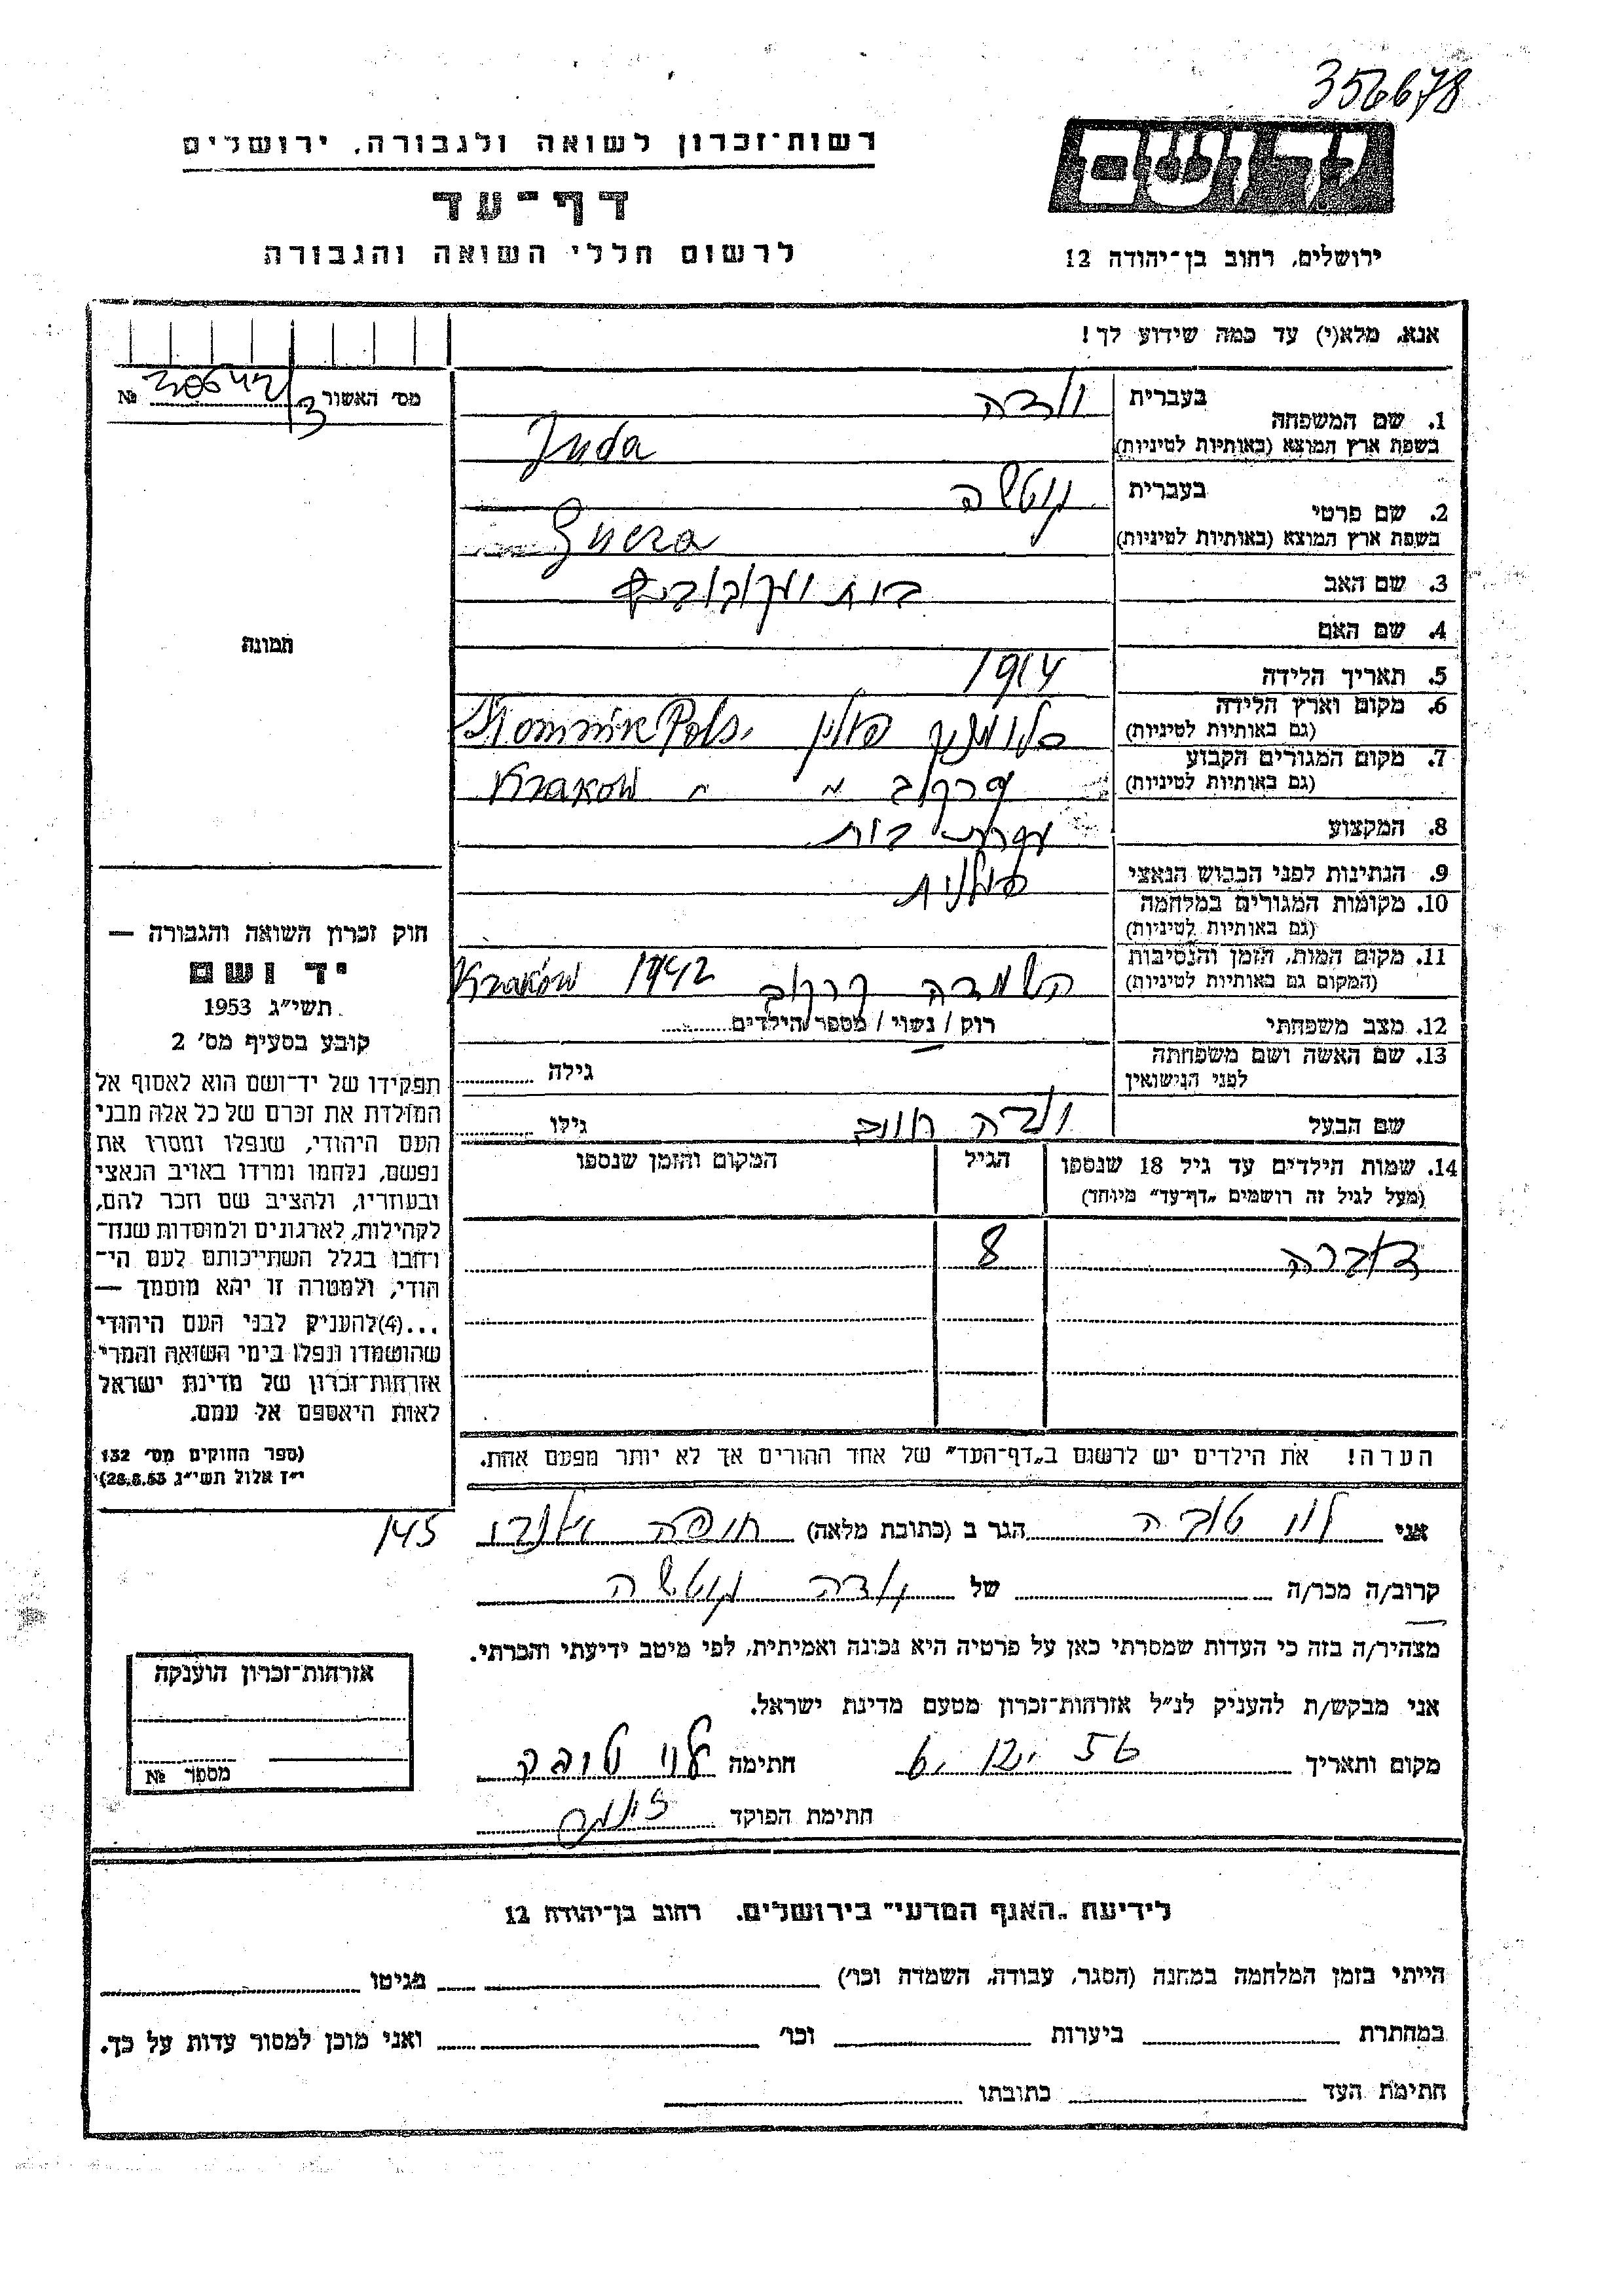 356678
רשות־זכרון לשואה ולגבורה, ירושלים
יד ושם
דף־עד
לרשום חללי השואה והגבורה
ירושלים, רחוב בן־יהודה 12
אנא, מלא(י) עד כמה שידוע לך!
מס׳ האשור № 30642/3
1. שם המשפחה
בעברית יודה
בשפת ארץ המוצא (באותיות לטיניות) Juda
2. שם פרטי
בעברית
בשפת ארץ המוצא (באותיות לטיניות)
3. שם האב
תמונה
4. שם האם
5. תאריך הלידה 1914
6. מקום וארץ הלידה
(גם באותיות לטיניות) פולין Pols.
7. מקום המגורים הקבוע
(גם באותיות לטיניות) קרקוב " " Kraków
8. המקצוע עקרת בית
9. הנתינות לפני הכבוש הנאצי פולנית
10. מקומות המגורים במלחמה
(גם באותיות לטיניות)
11. מקום המות, הזמן והנסיבות
(המקום גם באותיות לטיניות) השמדה קרקוב 1942 Kraków
12. מצב משפחתי רוק / נשוי / מספר הילדים
13. שם האשה ושם משפחתה
לפני הנישואין גילה
שם הבעל יודה גילו
14. שמות הילדים עד גיל 18 שנספו הגיל המקום והזמן שנספו
(מעל לגיל זה רושמים „דף־עד״ מיוחד)
דוברה 8
הערה! את הילדים יש לרשום ב„דף־העד״ של אחד ההורים אך לא יותר מפעם אחת.
חוק זכרון השואה והגבורה —
יד ושם
תשי״ג 1953
קובע בסעיף מס׳ 2
תפקידו של יד־ושם הוא לאסוף אל
המולדת את זכרם של כל אלה מבני
העם היהודי, שנפלו ומסרו את
נפשם, נלחמו ומרדו באויב הנאצי
ובעוזריו, ולהציב שם וזכר להם,
לקהילות, לארגונים ולמוסדות שנח־
רהבו בגלל השתייכותם לעם הי־
הודי, ולמטרה זו יהא מוסמך —
...(4)להעניק לבני העם היהודי
שהושמדו ונפלו בימי השואה והמרי
אזרחות־זכרון של מדינת ישראל
לאות היאספם אל עמם.
(ספר החוקים מס׳ 132
י״ז אלול תשי״ג 28.8.53)
אני לוי טובה הגר ב (כתובת מלאה) חיפה 145
קרוב/ה מכר/ה של יודה
מצהיר/ה בזה כי העדות שמסרתי כאן על פרטיה היא נכונה ואמיתית, לפי מיטב ידיעתי והכרתי.
אני מבקש/ת להעניק לנ״ל אזרחות־זכרון מטעם מדינת ישראל.
מקום ותאריך חתימה לוי טובה
חתימת הפוקד
אזרחות־זכרון הוענקה
מספר №
לידיעת „האגף המדעי״ בירושלים, רחוב בן־יהודה 12
הייתי בזמן המלחמה במחנה (הסגר, עבודה, השמדה וכו׳) בגיטו
במחתרת ביערות וכו׳ ואני מוכן למסור עדות על כך.
חתימת העד כתובתו